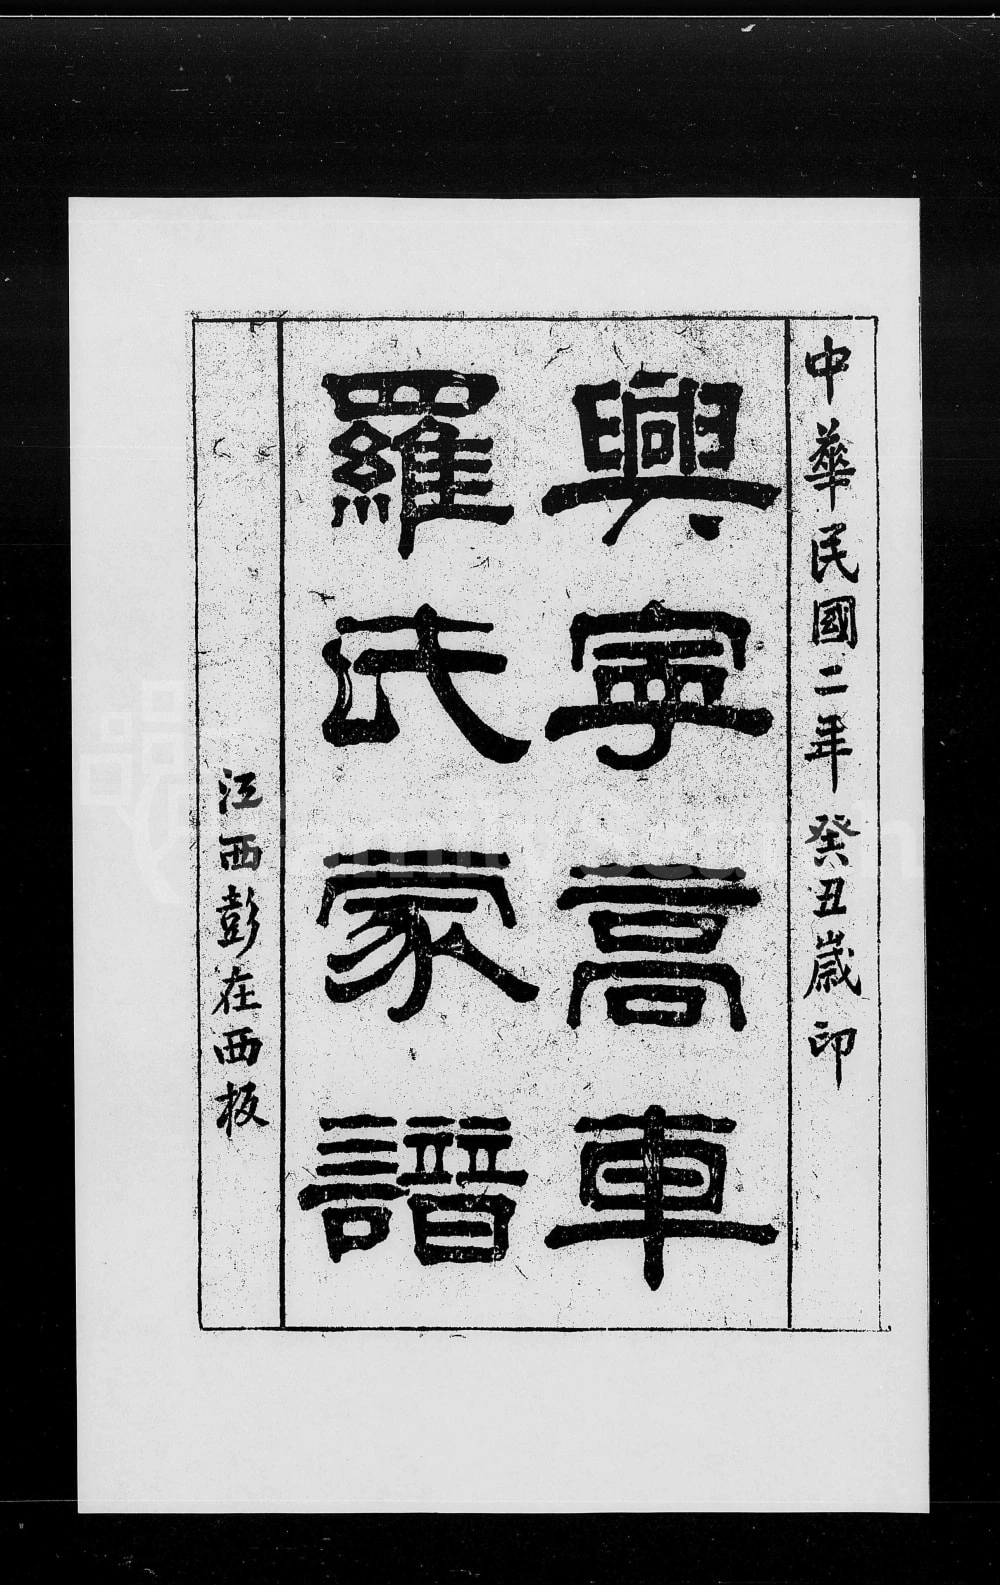 中華民國二年癸丑歲印
興寧高車
羅氏家譜
江西彭在西板
FamilySearch